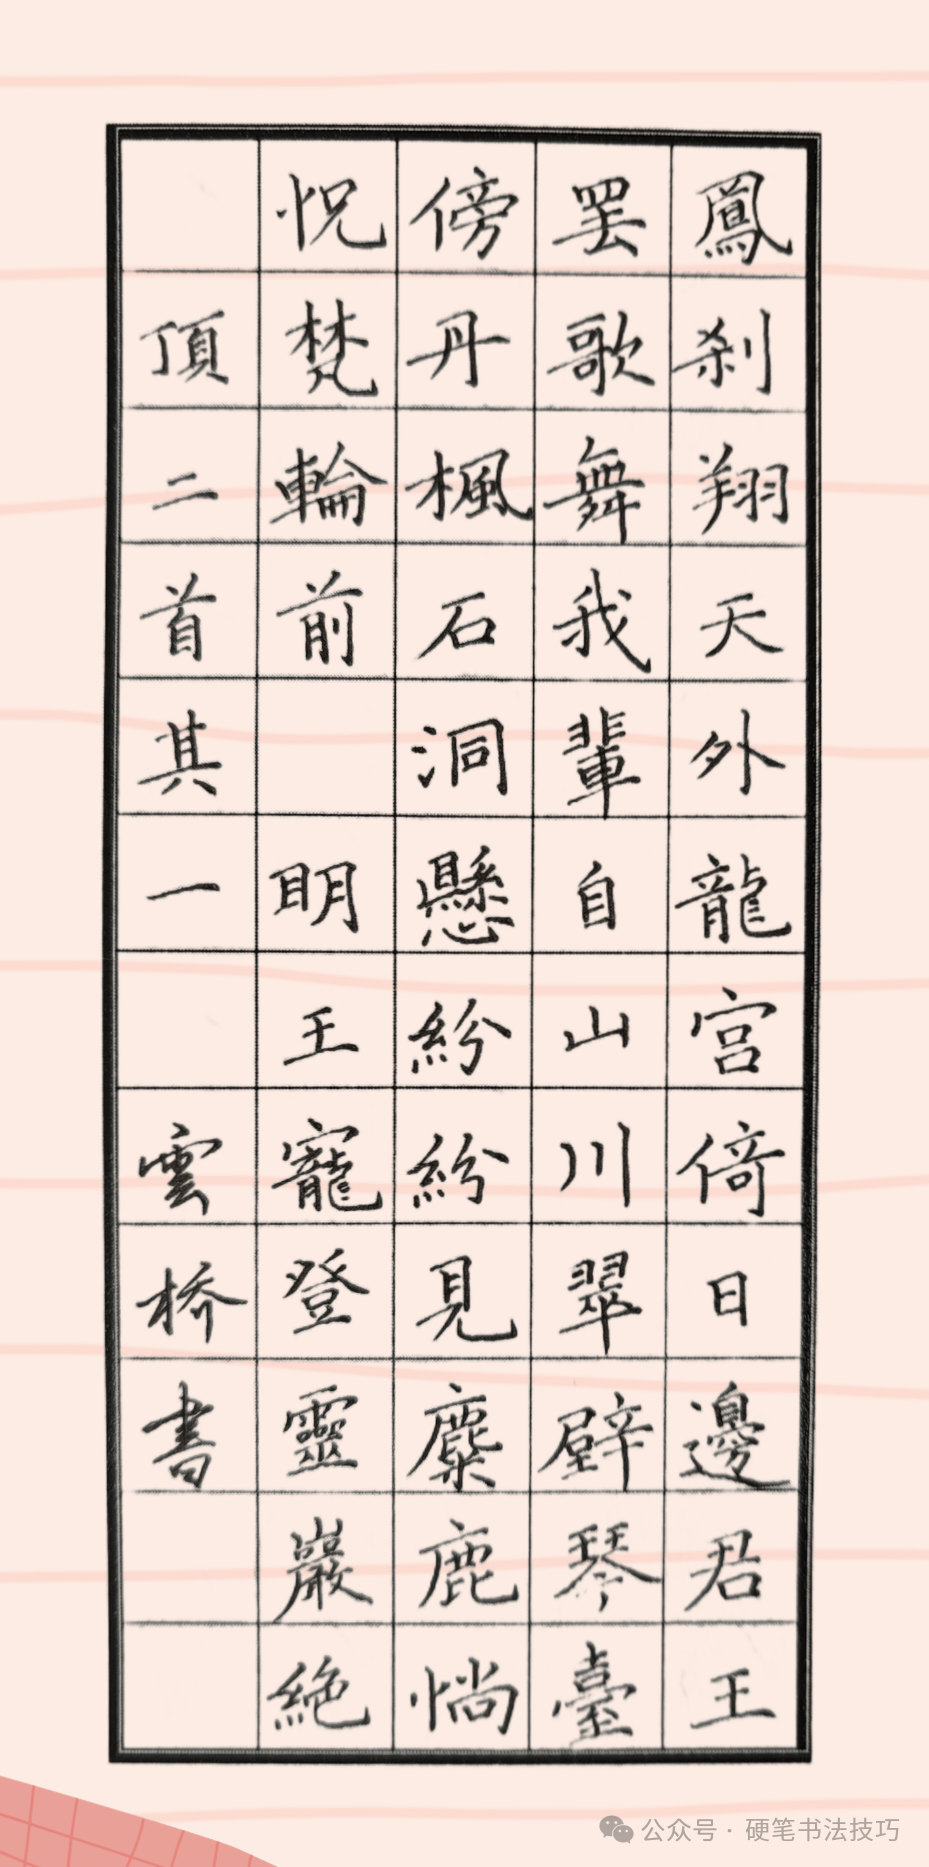 鳳刹翔天外龍宫倚日邊君王
罷歌舞我輩自山川翠壁琴臺
傍丹楓石洞懸紛紛見麋鹿惝
怳梵輪前 明王寵登靈巖絶
頂二首其一 雲桥書
公众号 · 硬笔书法技巧